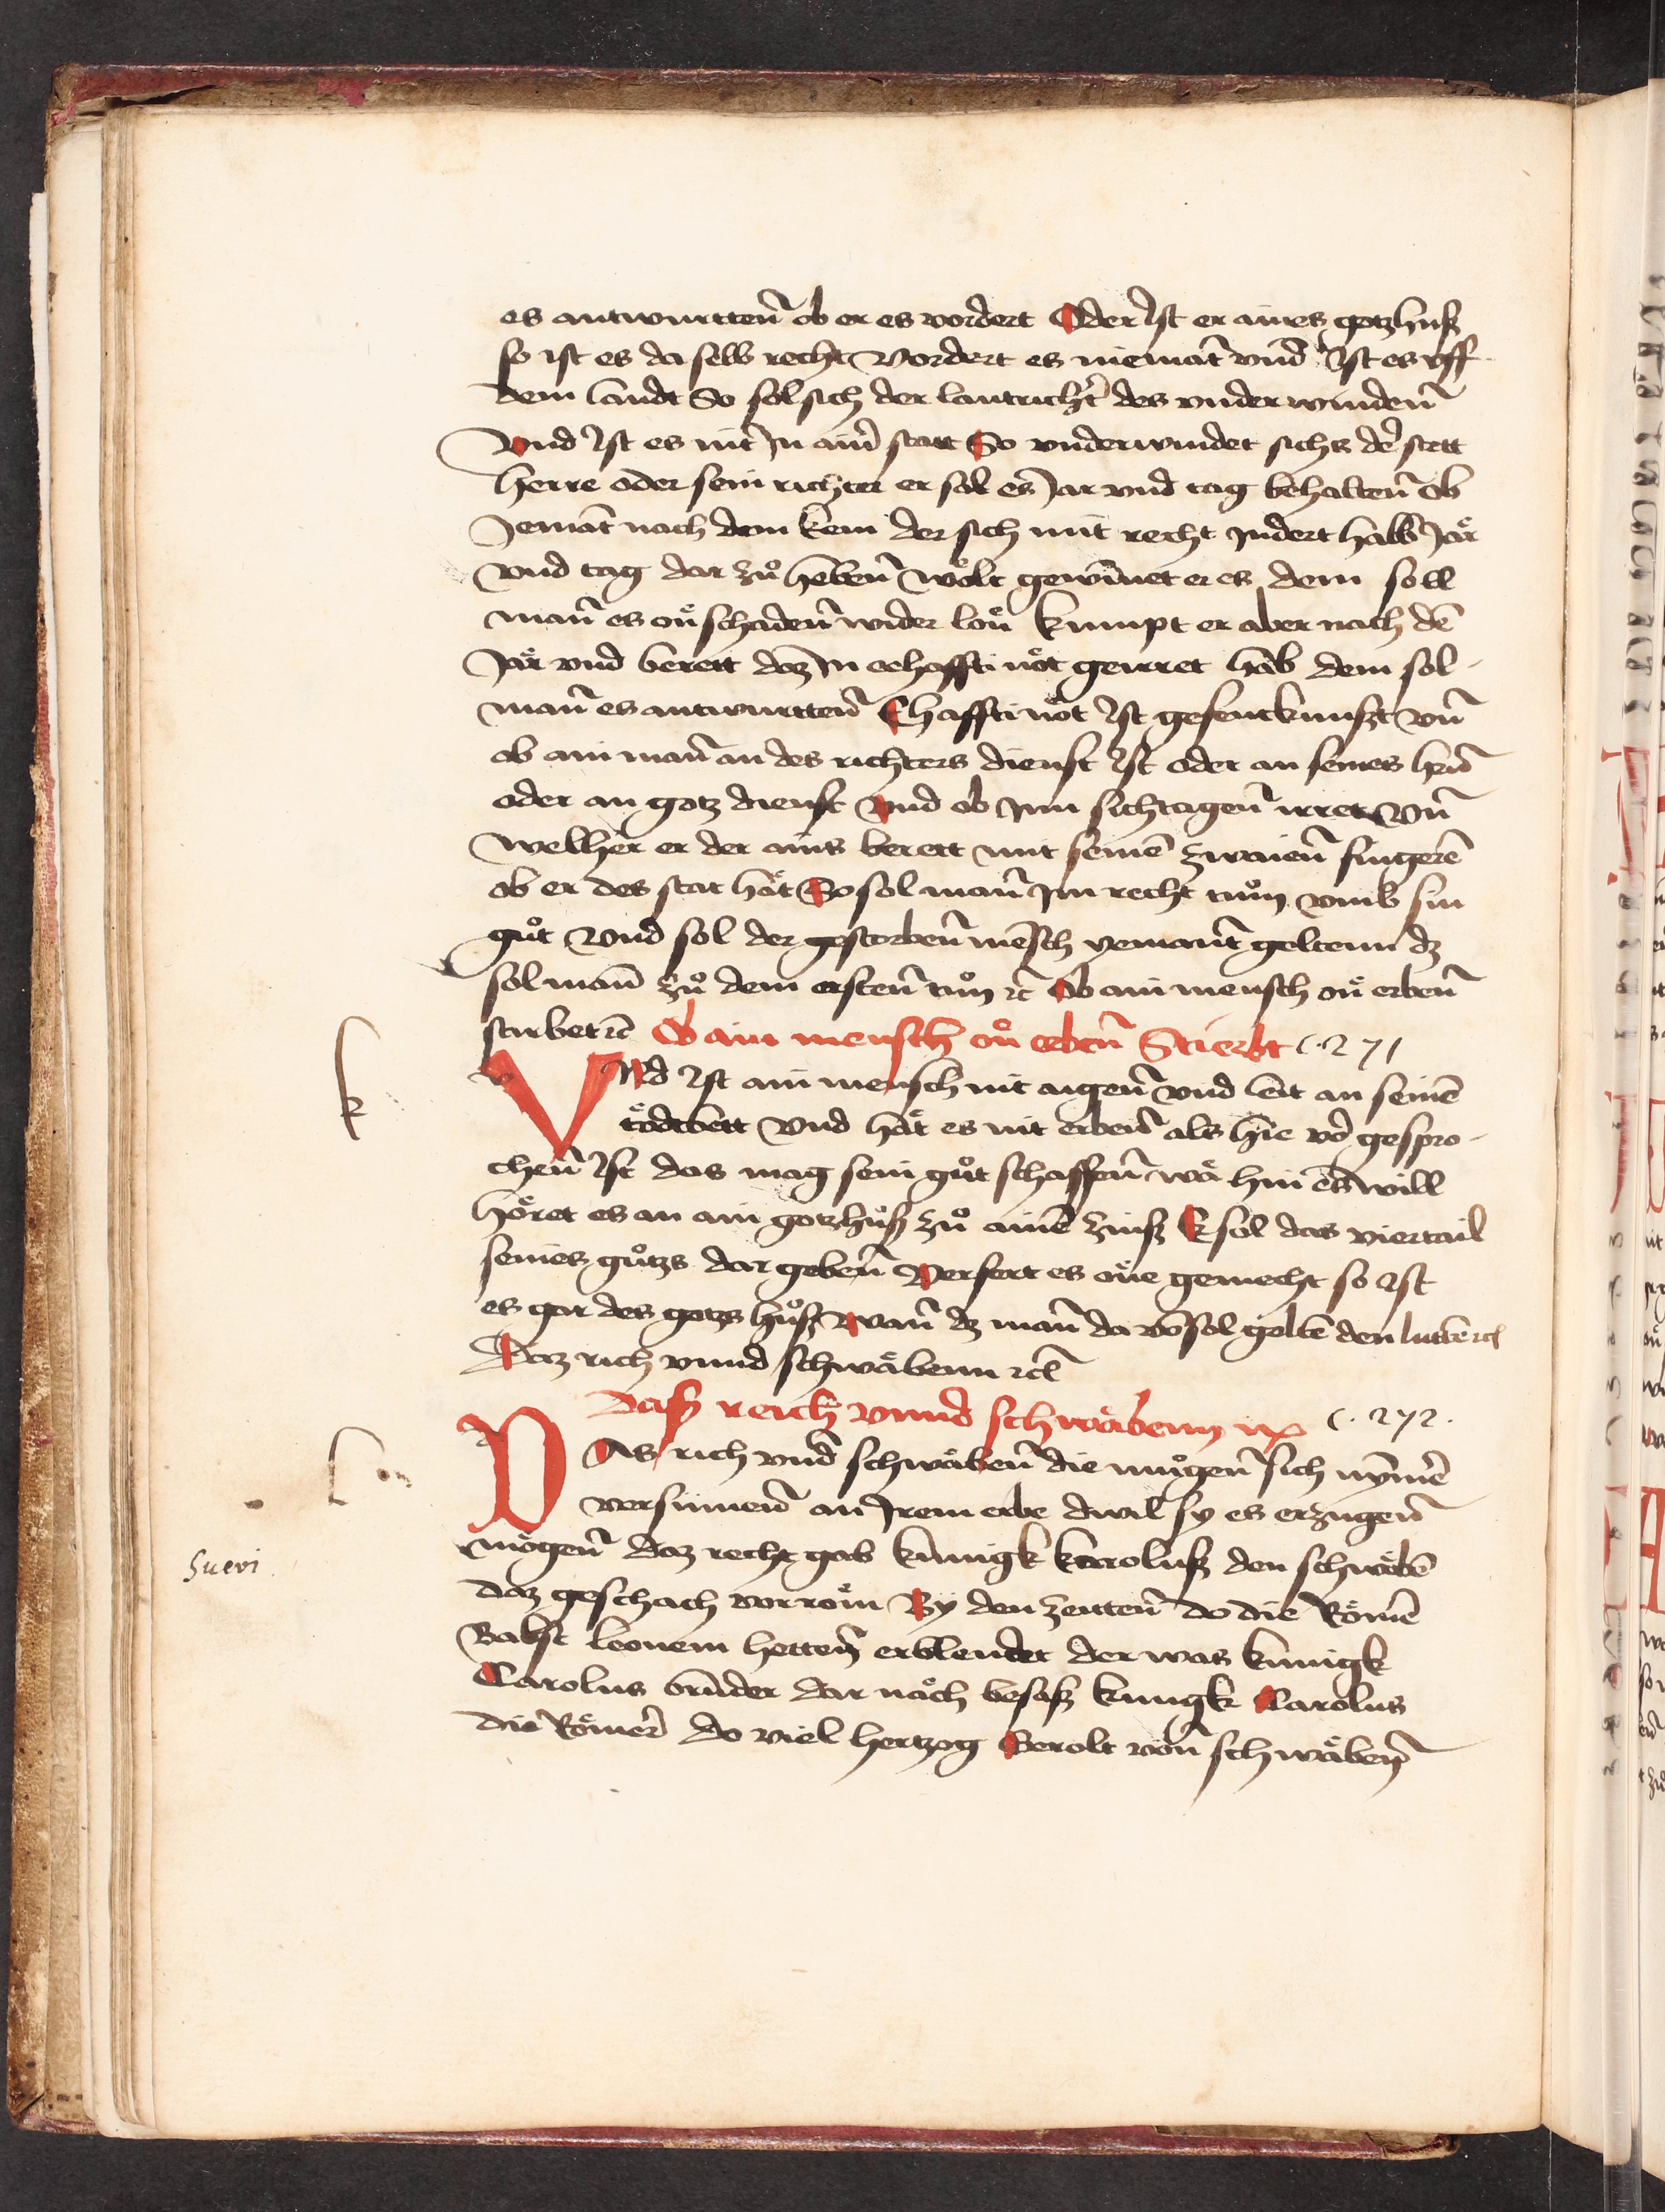 es antwurttenn̄ ob er es vordert Oder Ist er aines gotzhuß
so ist es da selb recht Vordert es niemāt vnd Ist es vff
dem landt So sol sich der lantricht̄ des vnder windenn̄
Vnd Ist es nit In ain̄ statt So vnderwindet sichs d̄ stett
herre oder sein richter er sol es Jar vnd tag behaltenn̄ Ob
Jemāt nach dem kem der sich mit recht Indert halb Jaͤr
vnd tag dar zuͦ hebenn̄ woͤlt gewinnet er es dem soll
man̄ es oͤn schadenn̄ wider loͤn kumpt er aber nach dē
Jaͤr vnd berett daz In eehaffti noͤt geirret hab dem sol-
man̄ es antwurttenn̄ Ehaffti noͤt Ist gefentknußt vn̄
ob ain man̄ an des richters dienst Ist oder an seines hrn̄
oder an gotz dienst Vnd ob Inn sichtagenn̄ irret Vn̄
welher er der ains berett mit seinē zwaienn̄ fingerē
ob er des stat haͤt So sol man̄ Im recht tuͦn vmb sin
guͦt Vnd sol der gestorbenn̄ mēsch yemant̄ geltenn dz
sol man̄ zuͦ dem erstenn̄ tuͦn ꝛc Ob ain mensch oͤn erbenn̄
starbet ꝛc Ob ain mensch oͤn erbenn̄ Stierbt c. 271
k
VNd Ist ain mensch nit aigenn̄ vnd leit an seinē
toͤdtbett Vnd haͤt es nit erbenn̄ als hie vō gespro-
chenn̄ Ist das mag sein guͦt schaffenn̄ waͤ hin es will
hoͤret es an ain gotzhuß zuͦ ainē zinß E sol das viertail
seines guͦtzs dar gebenn̄ Verfert es oͤne gemecht so Ist
es gar des gotzs huß wann̄ dz man̄ da vō sol geltē den lutē ꝛc
Daz rich vnnd schwaͤbenn ꝛc
Daß reich vnnd schwaͤbenn c. 272.
DAs rich vnd schwaͤbenn̄ die muͦgenn̄ sich nȳmē
versumenn̄ an Irem erbe dwil sy es erzugenn̄
moͤgenn̄ Daz recht gab kunigk karoluß den schwaͤbē
Suevi.
daz geschach vor roͤm By den zeittenn̄ do die Roͤmē
Babst leonem hettenn̄ erblendet der was kunigk
Carolus bruder dar naͤch besaß kungk Carolus
die Roͤmer̄ do viel hertzog Gerolt von̄ schwaͤbenn̄